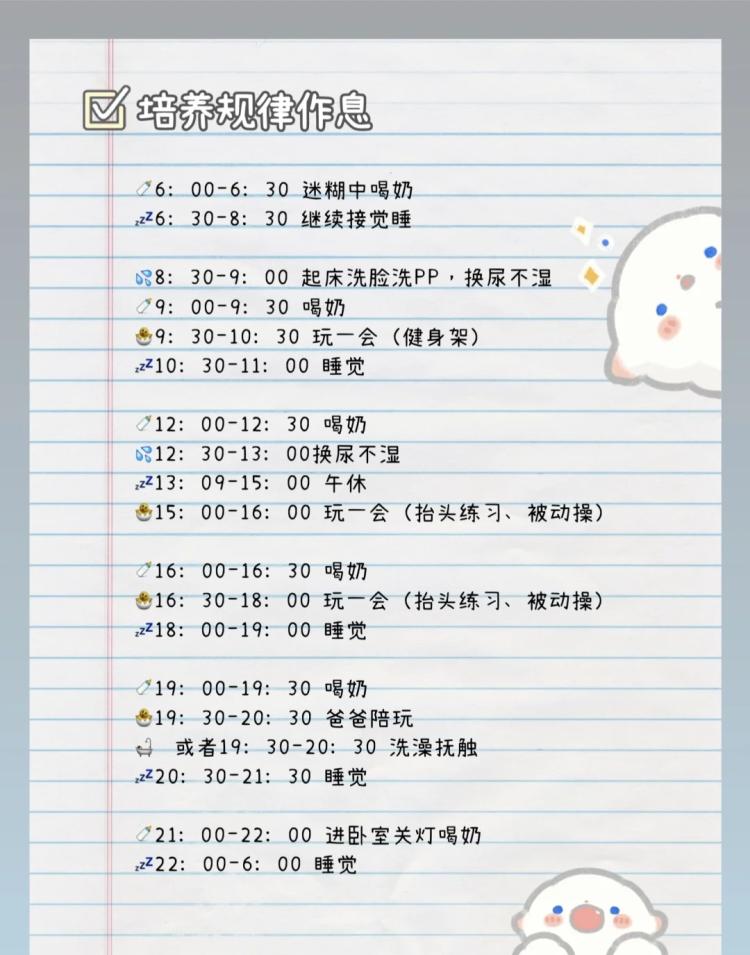 培养规律作息
6：00-6：30 迷糊中喝奶
zzZ6：30-8：30 继续接觉睡
8：30-9：00 起床洗脸洗PP，换尿不湿
9：00-9：30 喝奶
9：30-10：30 玩一会（健身架）
zzZ10：30-11：00 睡觉
12：00-12：30 喝奶
12：30-13：00换尿不湿
zzZ13：09-15：00 午休
15：00-16：00 玩一会（抬头练习、被动操）
16：00-16：30 喝奶
16：30-18：00 玩一会（抬头练习、被动操）
zzZ18：00-19：00 睡觉
19：00-19：30 喝奶
19：30-20：30 爸爸陪玩
或者19：30-20：30 洗澡抚触
zzZ20：30-21：30 睡觉
21：00-22：00 进卧室关灯喝奶
zzZ22：00-6：00 睡觉